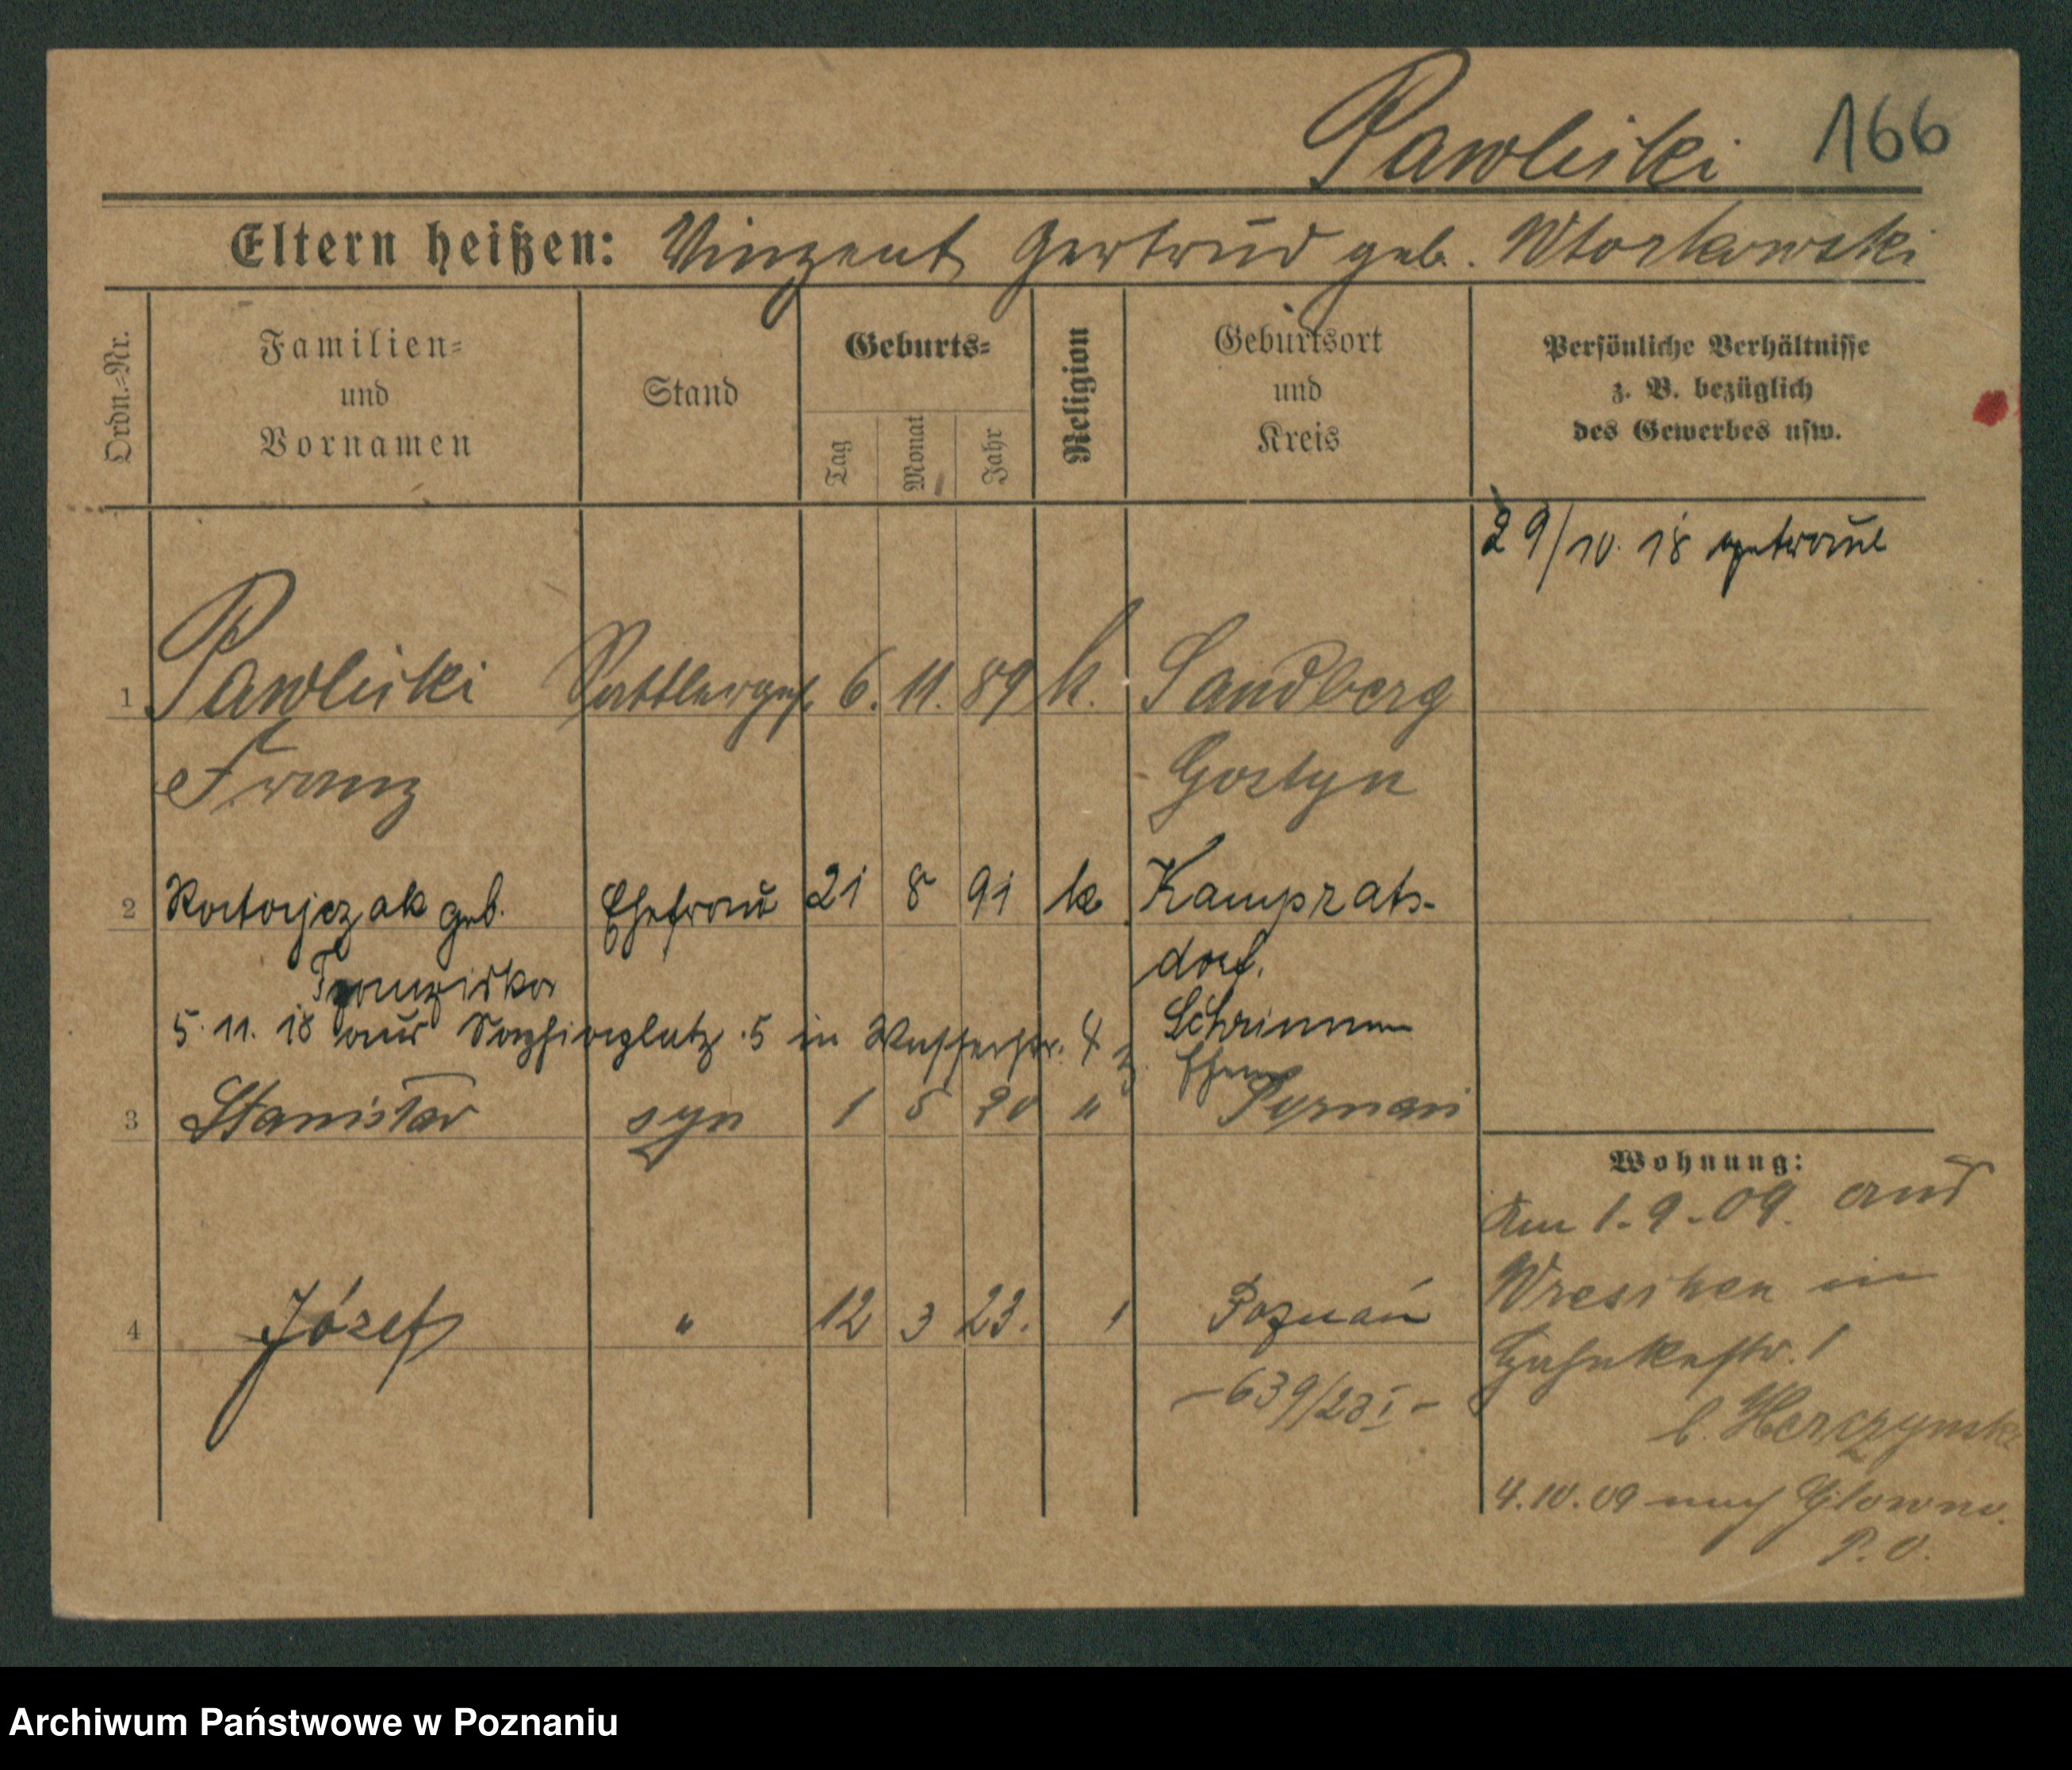 Pawliski 166
Eltern heißen: Vinzent Gertrud geb. Wtorkowski
Ordn.=Nr.
Familien=
und
Vornamen
Stand
Geburts=
Tag
Monat
Jahr
Religion
Geburtsort
und
Kreis
Persönliche Verhältnisse
z. B. bezüglich
des Gewerbes usw.
29/10. 18 getraut
1 Pawliski Sattlerges. 6. 11. 89 k. Sandberg
Franz Gostyn
2 Ratajczak geb. Ehefrau 21 8 91 k Kamprats-
Franziska dorf.
5. 11. 18 aus Sapiehaplatz 5 in Wasserstr. 4 z. Ehem
Schrimm
3 Stanisław syn 1 5 20 " Poznań
4 Józef " 12 3 23. " Poznań
-639/23 I-
Wohnung:
Am 1.9.09. aus
Wreschen in
str. 1
b.
4.10.09 nach Glowno.
P. O.
Archiwum Państwowe w Poznaniu